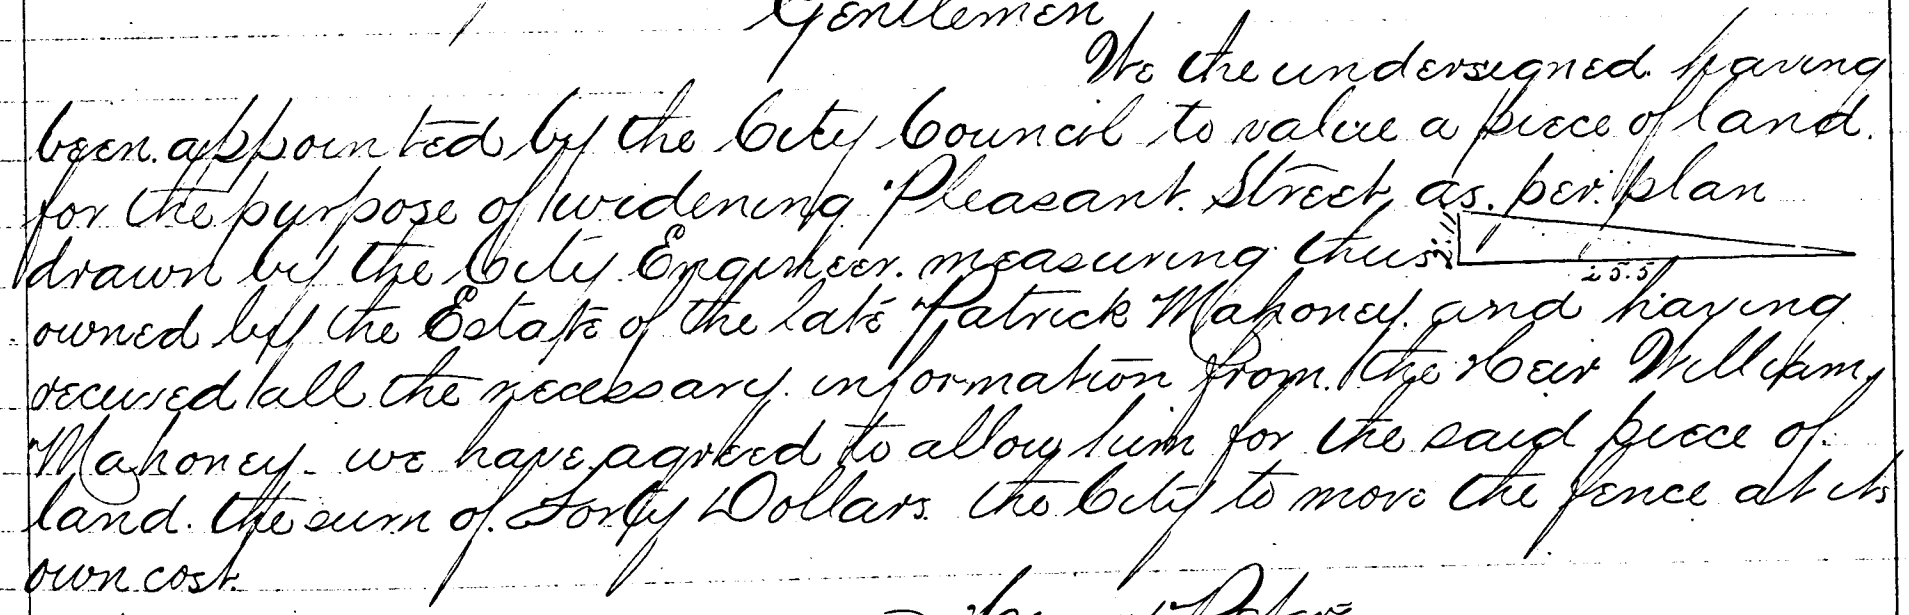 Gentlemen
We the undersigned. having
been. appointed by the City Council to value a piece of land.
for the purpose of widening Pleasant. Street, as. per. plan
drawn by the City Engineer. measuring thus
25.5
owned by the Estate of the late Patrick Mahoney. and having
received all the necessary. information from. the Heir William
Mahoney - we have agreed to allow him for the said piece of
land. the sum of. Forty Dollars. the City to move the fence at its
own cost.